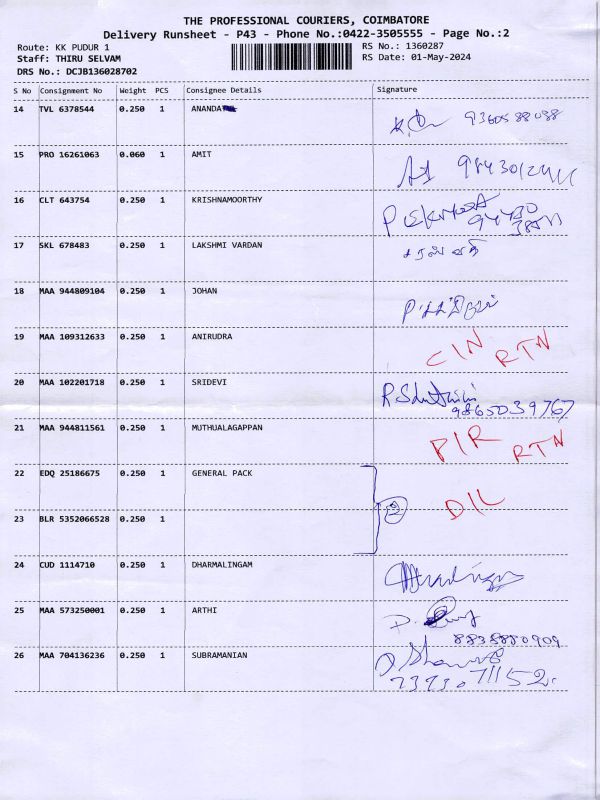 THE PROFESSIONAL COURIERS, COIMBATORE
Delivery Runsheet - P43 - Phone No.:0422-3505555 - Page No.:2
Route: KK PUDUR 1 RS No.: 1360287
Staff: THIRU SELVAM RS Date: 01-May-2024
DRS No.: DCJB136028702
S No Consignment No Weight PCS Consignee Details Signature
14 TVL 6378544 0.250 1 ANANDA 9360588088
15 PRO 16261063 0.060 1 AMIT
16 CLT 643754 0.250 1 KRISHNAMOORTHY
17 SKL 678483 0.250 1 LAKSHMI VARDAN
18 MAA 944809104 0.250 1 JOHAN
19 MAA 109312633 0.250 1 ANIRUDRA CIN RTN
20 MAA 102201718 0.250 1 SRIDEVI
9865039767
21 MAA 944811561 0.250 1 MUTHUALAGAPPAN PIR RTN
22 EDQ 25186675 0.250 1 GENERAL PACK
2 DIL
23 BLR 5352066528 0.250 1
24 CUD 1114710 0.250 1 DHARMALINGAM
25 MAA 573250001 0.250 1 ARTHI
8838880909
26 MAA 704136236 0.250 1 SUBRAMANIAN